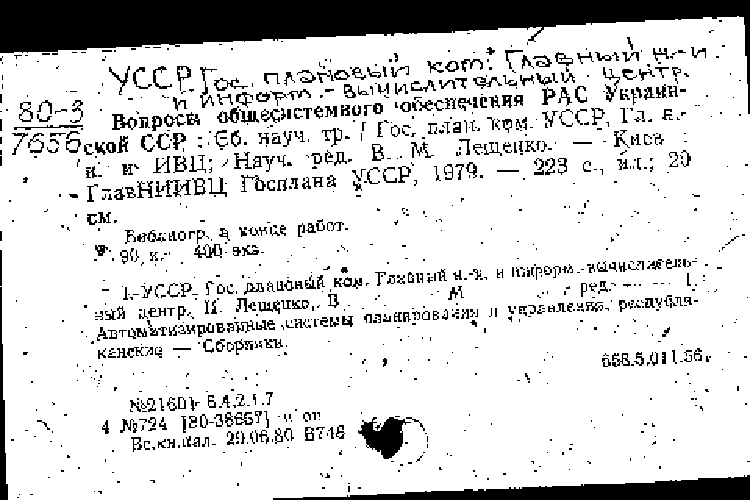 УССР Гос. плановый ком. Главный н.-и.
и информ.-вычислительный центр.
80-3
7656
Вопросы общесистемного обеспечения РАС Украин-
ской ССР : Сб. науч. тр. / Гос. план. ком. УССР, Гл. н.-
и. и ИВЦ; Науч. ред. В. М. Лещенко. — Киев
ГлавНИИВЦ Госплана УССР, 1979. — 223 с., ил.; 20
см.
Библиогр. в конце работ.
90 к. 400 экз.
1. УССР. Гос. плановый ком. Главный н.-и. и информ.-вычислитель-
ный центр. И. Лещенко, В М ред. — — 1.
Автоматизированные системы планирования и управления, республи-
канские — Сборники.
658.5.011.56.
№21601 8.4.2.1.7
4 №724 [80-38667] и оп
Вс.кн.пал. 20.06.80 Б746